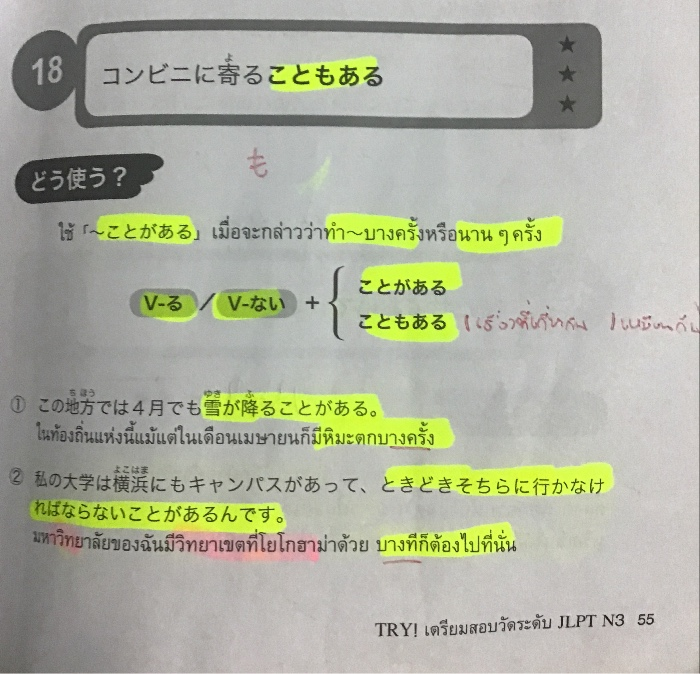 18 コンビニに寄ることもある ★★★
よ
も
どう使う？
ใช้「～ことがある」เมื่อจะกล่าวว่าทำ～บางครั้งหรือนาน ๆ ครั้ง
V-る／V-ない + { ことがある
こともある
① この地方では４月でも雪が降ることがある。
ちほう ゆき ふ
ในท้องถิ่นแห่งนี้แม้แต่ในเดือนเมษายนก็มีหิมะตกบางครั้ง
② 私の大学は横浜にもキャンパスがあって、ときどきそちらに行かなけ
よこはま
ればならないことがあるんです。
มหาวิทยาลัยของฉันมีวิทยาเขตที่โยโกฮาม่าด้วย บางทีก็ต้องไปที่นั่น
TRY! เตรียมสอบวัดระดับ JLPT N3 55